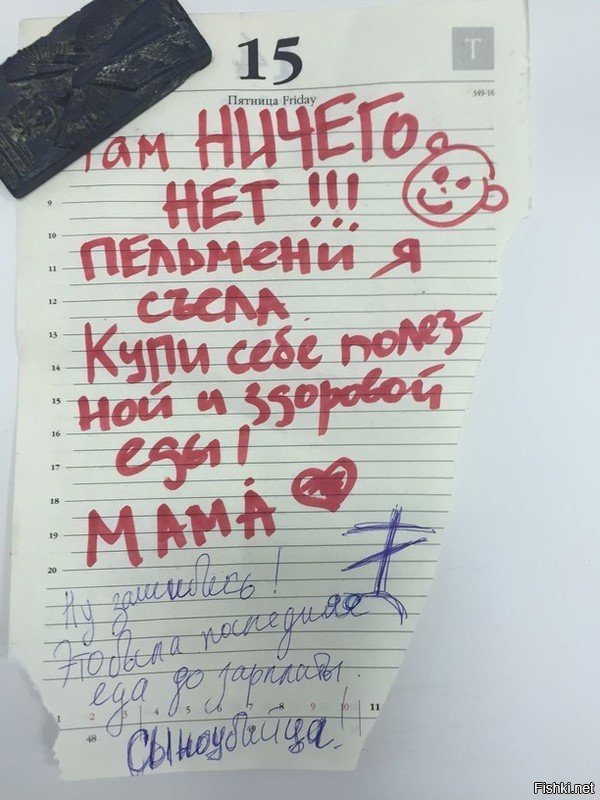 15
Т
Пятница Friday
349-16
Там НИЧЕГО
НЕТ !!!
9
10
ПЕЛЬМЕНИ Я
11
СЪЕЛА
12
13
Купи себе полез-
14
ной и здоровой
15
16
еды!
17
18
МАМА
19
20
Ну зашибись!
Это была последняя
еда до зарплаты.
1 2 3 4 5 6 7 8 9 10 11
48
СЫНОУБИЙЦА!
Fishki.net